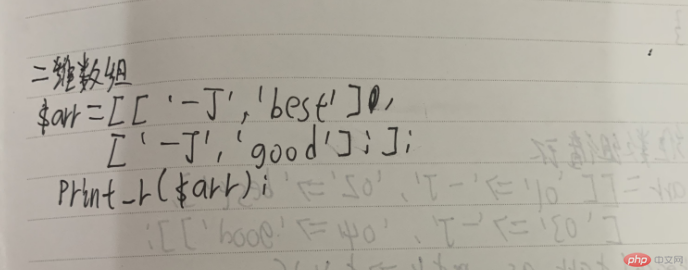 二维数组
$arr=[['-J','best'],
['-J','good'];];
print_r($arr);
php 中文网